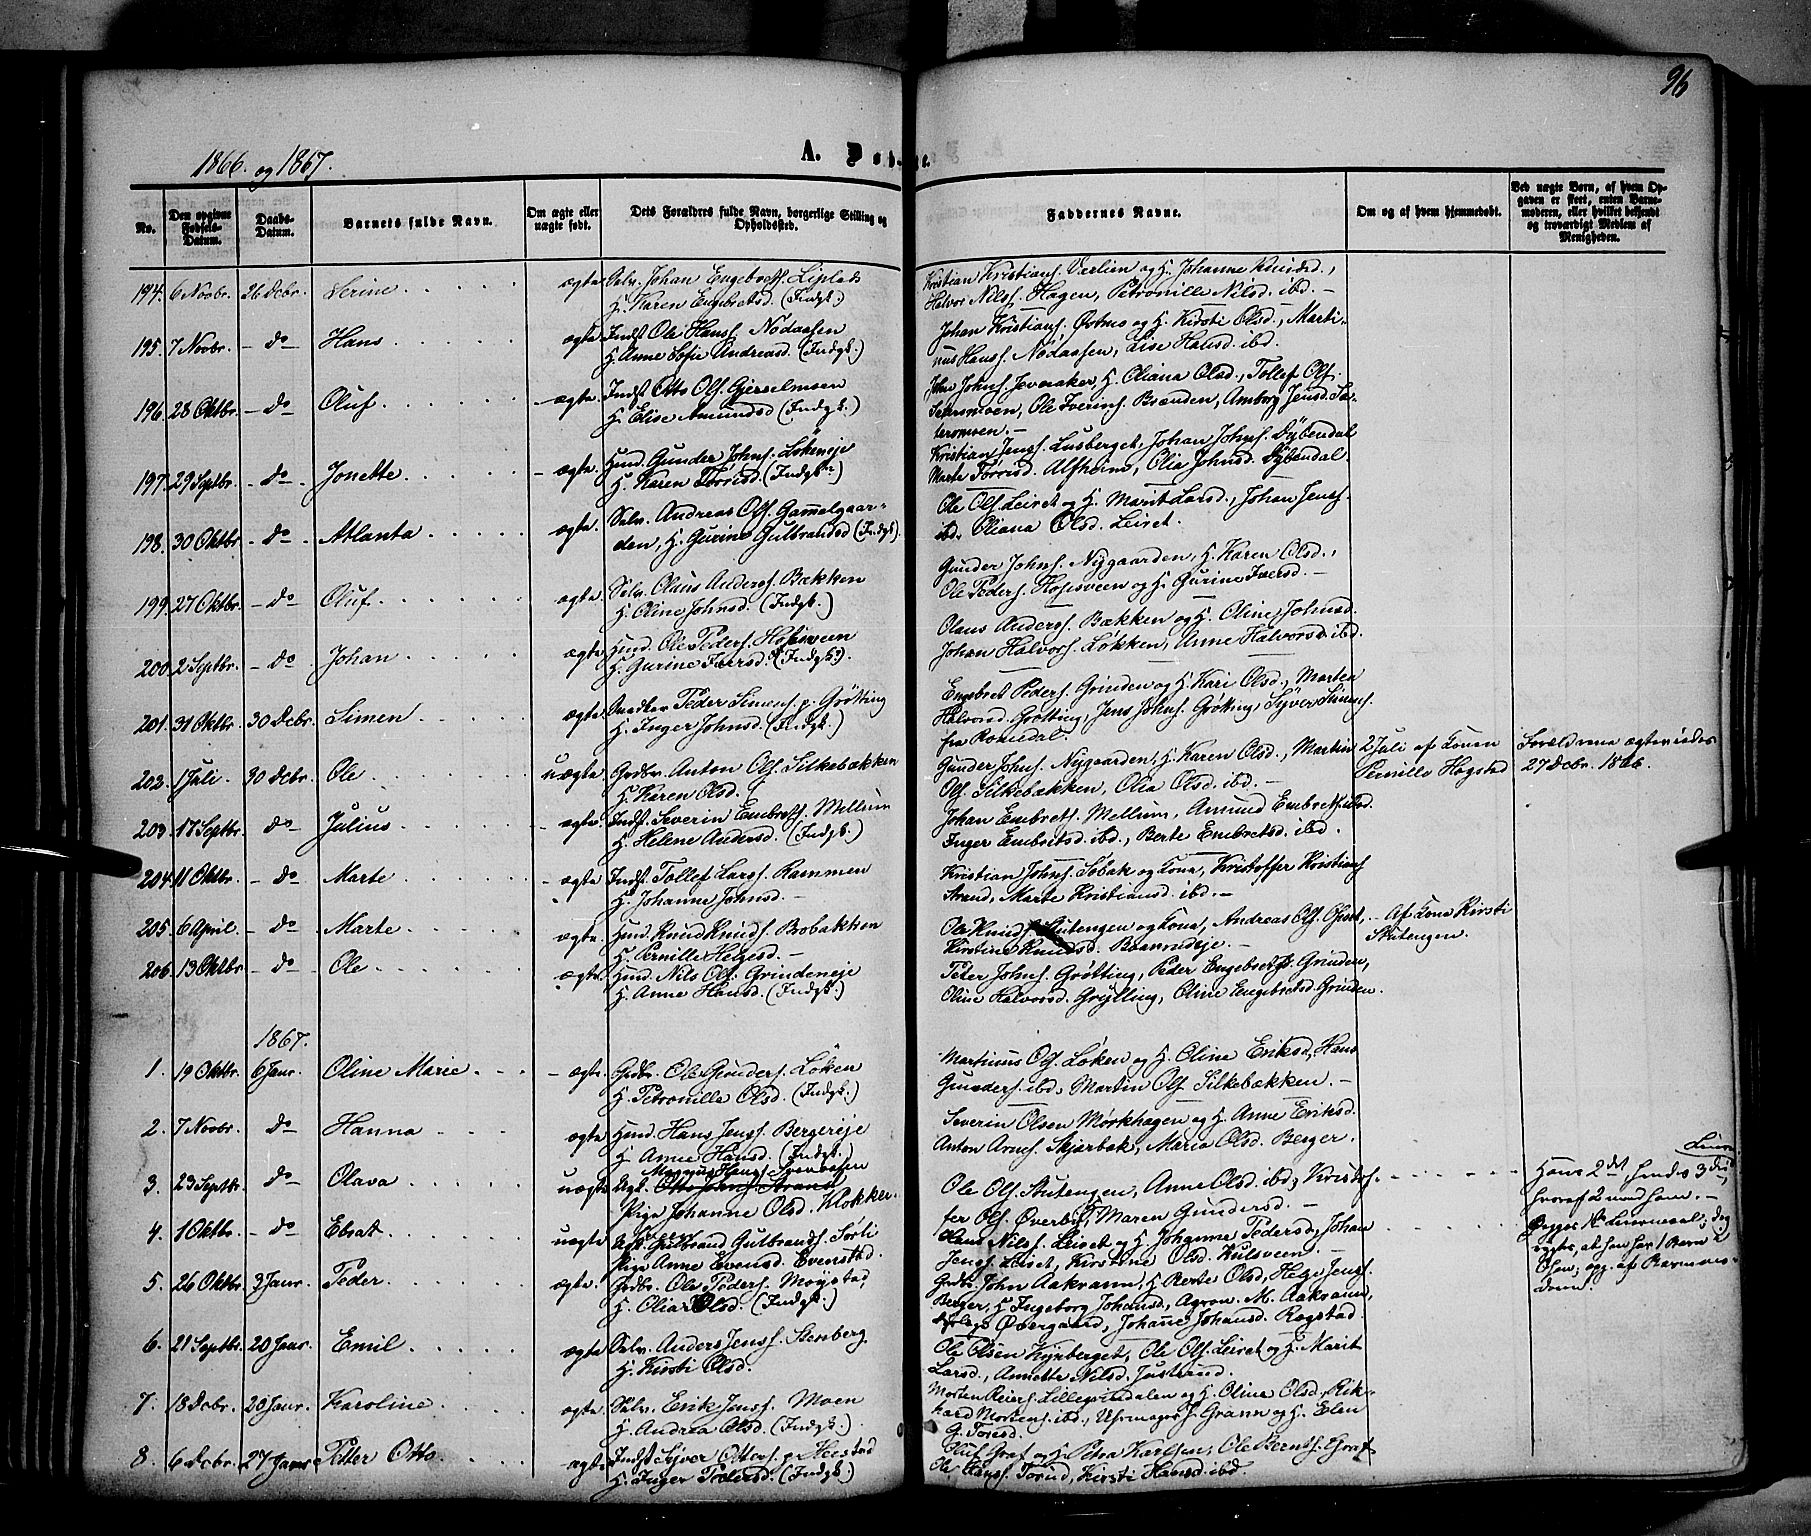 96
1866. og 1867.
A. Døbte.
No.
Den opgivne Fødsels-Datum.
Daabs-Datum.
Barnets fulde Navn.
Om ægte eller uægte født.
Dets Forældres fulde Navn, borgerlige Stilling og Opholdssted.
Faddernes Navne.
Om og af hvem hjemmedøbt.
Ved uægte Børn, af hvem Opgaven er skeet, enten Barnemoderen, eller hvilket bekjendt og troværdigt Medlem af Menigheden.
194. 6 Novbr. 26 Dcbr. Serine ægte Selv. Johan Engebrets. Liplads
H. Karen Engebretsd. (Indgk.)
Kristian Kristians. Værlien og H. Johanne Knudsd.,
Halvor Nilss. Hagen, Petronille Nilsd. ibd. –
195. 7 Novbr. – do Hans ægte Indst Ole Hanss. Nødaasen
H. Anne Sofie Andreasd. (Indgk.)
Johan Kristians. Østmo og H. Kirsti Olsd., Marti-
nus Hanss. Nødaasen, Lise Hansd. ibd.
196. 28 Oktbr. – do Oluf ægte Indst Otto Ols. Gjeselmoen
H. Elise Amundsd (Indgk.)
John Johns. Jøvraaker, H. Oliana Olsd., Tollef Ols.
Sætermoen, Ole Iverins. Brænden, Amborg Jensd. Sæ-
termoen. –
197. 29 Septbr. – do Jonette – ægte Husm. Gunder Johns. Løkeneje
H. Karen Torrisd. (Indgk.)
Kristian Jenss. Lusberget, Johan Johns. Dybendal
Marte Torrisd. Alfheim, Olia Johnsd. Dybendal.
198. 30 Oktbr. – do Atlanta ægte Selv. Andreas Ols. Gammelgaar-
den, H. Gurine Gulbrandsd (Indgk.)
Ole Ols. Leiret og H. Marit Larsd., Johan Jenss.
ibd. Oliana Olsd. Leiret.
199. 27 Oktbr. – do Oluf ægte Selv. Olaus Anderss. Bækken
H. Oline Johnsd. (Indgk.)
Gunder Johns. Nygaarden, H. Karen Olsd.,
Ole Peders. Hofsveen og H. Gurine Iversd. –
200. 2 Septbr. – do Johan ægte Husm. Ole Peders. Hofsveen
H. Gurine Iversd. (Indgk.)
Olaus Anderss. Bækken og H. Oline Johnsd.
Johan Halvors. Løkken, Anne Halvorsd. ibd.
201. 31 Oktbr. 30 Dcbr. Simen ægte Snedker Peder Simens. p. Grøtting
H. Inger Johnsd. (Indgk.)
Engebret Peders. Grinden og H. Kari Olsd., Martea
Halvorsd. Grøtting, Jens Johns. Grøtting, Syver Simens.
fra Romedal.
202. 1 Juli. 30 Dcbr. Ole uægte Grdbr. Anton Ols. Silkebækken
H. Karen Olsd.
Gunder Johns. Nygaarden, H. Karen Olsd., Martin
Ols. Silkebækken, Olia Olsd. ibd. –
2 Juli af Konen
Pernille Hogstad
Forældrene ægteviedes
27 Dcbr. 1866.
203. 17 Septbr. do Julius ægte Indst. Severin Embrets. Mellum
H. Helene Andersd. (Indgk.)
Johan Embrets. Mellum, Amund Embrets. ibd.
Inger Embretsd. ibd., Berte Embretsd. ibd.
204. 11 Oktbr. – do Marte – ægte Indst. Tollef Larss. Rammen
H. Johanne Johnsd. –
Kristian Johns. Søbak og Kone, Kristoffer Kristians.
Strand, Marte Kristiansd. ibd. –
205. 6 April. – do Marte ægte Husm. Knud Knuds. Bobakken
H. Pernille Helgesd. –
Ole Knuds. Skutengen og Kone, Andreas Ols. Opset,
Kirstine Knudsd. –
– Af Kone Kirsti
Skutengen.
206. 13 Oktbr. – do Ole ægte Husm. Nils Ols. Grindeneje
H. Anne Hansd. (Indgk.)
Peter Johns. Grøtting, Peder Engebrets. Grinden,
Oline Halvorsd. Grøtting, Oline Engebretsd. Grinden.
1867.
1. 19 Oktbr. 6 Janr. Oline Marie – ægte Grdbr. Ole Gunders. Løken
H. Petronille Olsd. (Indgk.)
Martinus Ols. Løken og H. Oline Eriksd., Hans
Gunders. ibd., Martin Ols. Silkebækken. –
2. 7 Novbr. do Hanna ægte Husm. Hans Jenss. Bergereje
H. Anne Hansd. (Indgk.)
Severin Olsen Mørkhagen og H. Anne Eriksd.
Anton Arnes. Skjærbæk, Maria Olsd. Berger.
3. 23 Septbr. do Olava uægte Ugk. Magnus Hanss. Svenaasen
Otto Johns. Strand
Pige Johanne Olsd. Klokker.
Ole Ols. Skutengen, Anne Olsd. ibd., Kristof-
fer Ols. Øverby, Maren Gundersd. –
Hans 2det hendes 3die,
hvoraf 2 med ham. –
4. 1 Oktbr. – do Ebrat uægte Ugk. Gulbrand Gulbrands. Sørli
Pige Anne Evensd. Evenstad.
Hans Nilss. Leiret og H. Johanne Pedersd., Johan
Jenss. Leiret, Kirstine Olsd. Kulsveen. –
5. 26 Oktbr. 3 Janr. Peder ægte Grdbr. Ole Peders. Moystad
H. Olia Olsd. (Indgk.)
Grdbr. John Aakrann, H. Berte Olsd., Helge Jenss.
Berger, H. Ingeborg Johansd., Agron. M. Aakrann,
Øvergaard, Johanne Johansd. Rogstad.
6. 21 Septbr. 20 Janr. Emil ægte Selv. Anders Jenss. Stenberg
H. Kirsti Olsd.
Ole Olsen Kynberget, Ole Ols. Leiret og H. Marit
Larsd., Annette Nilsd. Justrand.
7. 18 Dcbr. 20 Janr. Karoline ægte Selv. Erik Jenss. Moen
H. Andrea Olsd. (Indgk.)
Morten Reiers. Lillegrindalen og H. Oline Olsd., Rik-
hard Mortens. ibd., Urmager J. Grann og H. Elen
G. Torisd.
8. 6 Dcbr. 27 Janr Petter Otto ægte Indst Syver Otters. p. Heestad
H. Inger Pedersd. (Indgk.)
Oluf Græf og H. Petra Karlsen, Ole Bernts. Græf
Ole Hanss. Torud, Kirsti Hansd. ibd.